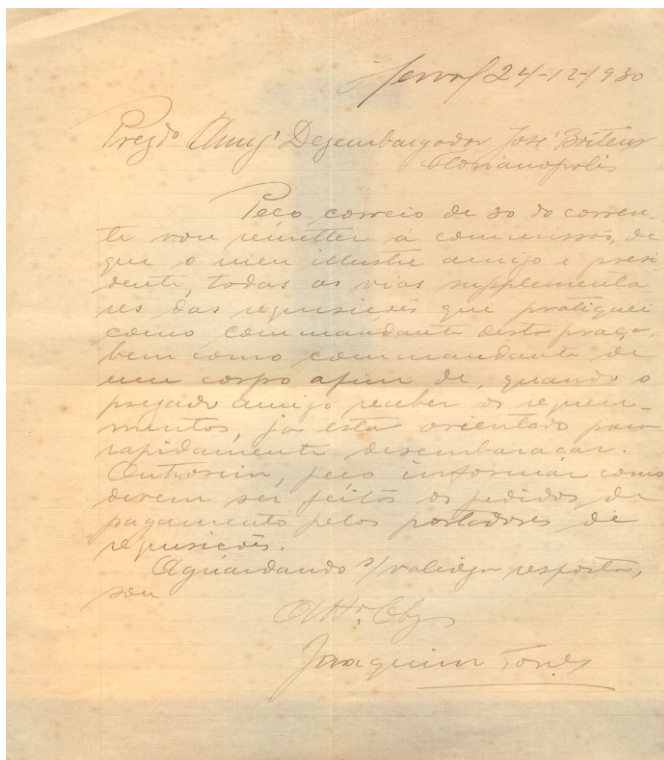 Herval 24-12-930
Prezdo Amigo Dezembargador José Boiteux
Florianopolis
Pelo correio de 30 do corren-
te vou remetter á commissão, de
que o meu illustre amigo é presi
dente, todas as vias supplementa
res das requisicões que pratiquei
como commandante desta praça,
bem como commandante de
um corpo afim de, quando o
prezado amigo receber os requeri-
mentos, já está orientado para
rapidamente desembaraçar.
Outrosim, peço informar como
devem ser feitos os pedidos de
pagamento pelos portadores de
requisicões.
Aguardando s/ valioza resposta,
sou
Atto. Obg
Joaquim Torres